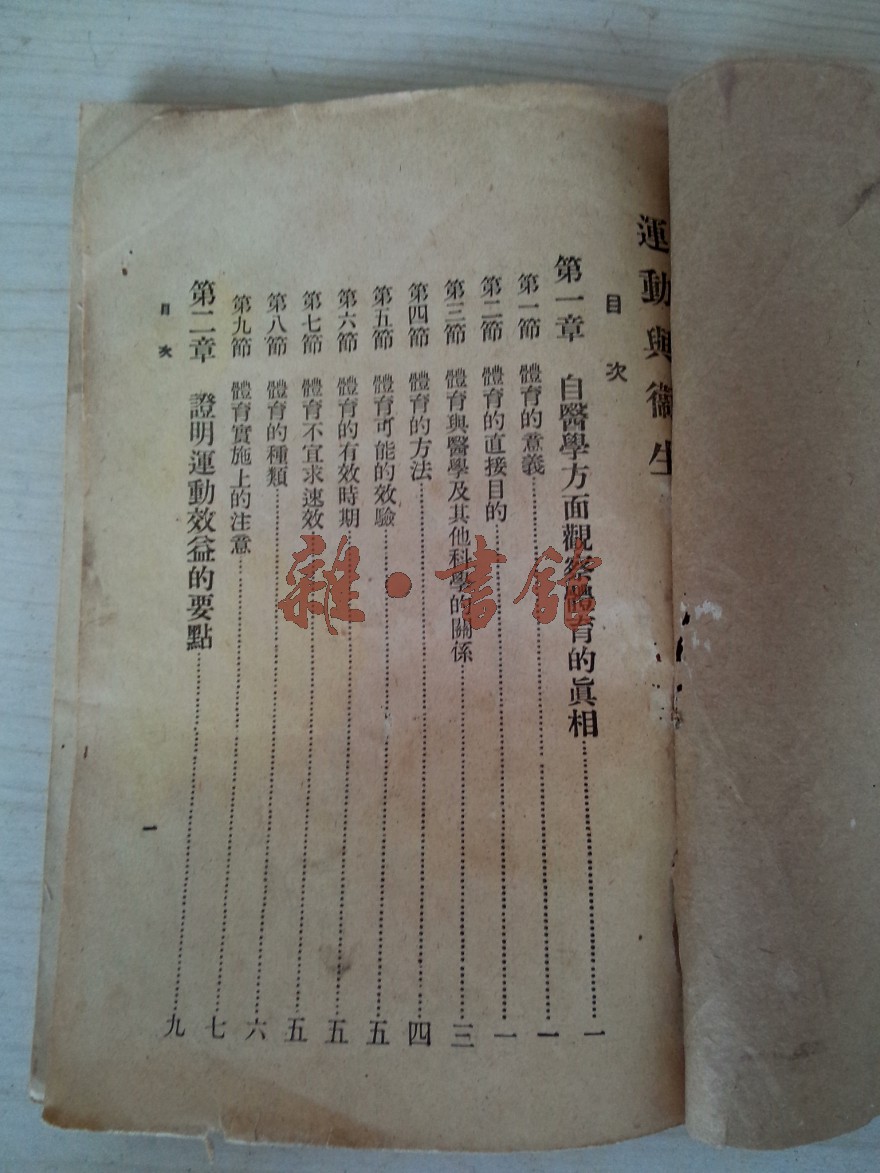 運動與衞生
目次
第一章 自醫學方面觀察體育的眞相……一
第一節 體育的意義……一
第二節 體育的直接目的……一
第三節 體育與醫學及其他科學的關係……三
第四節 體育的方法……四
第五節 體育可能的效驗……五
第六節 體育的有效時期……五
第七節 體育不宜求速效……五
第八節 體育的種類……六
第九節 體育實施上的注意……七
第二章 證明運動效益的要點……九
目次
一
雜·書館